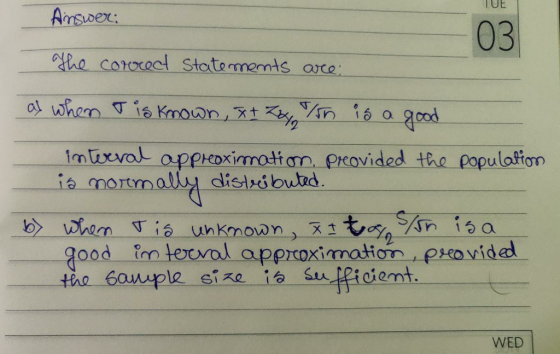 TUE
03
Answer:
The correct statements are:
a) when σ is known, x̄ ± zα/2 σ/√n is a good
interval approximation, provided the population
is normally distributed.
b) when σ is unknown, x̄ ± tα/2 S/√n is a
good interval approximation, provided
the sample size is sufficient.
WED